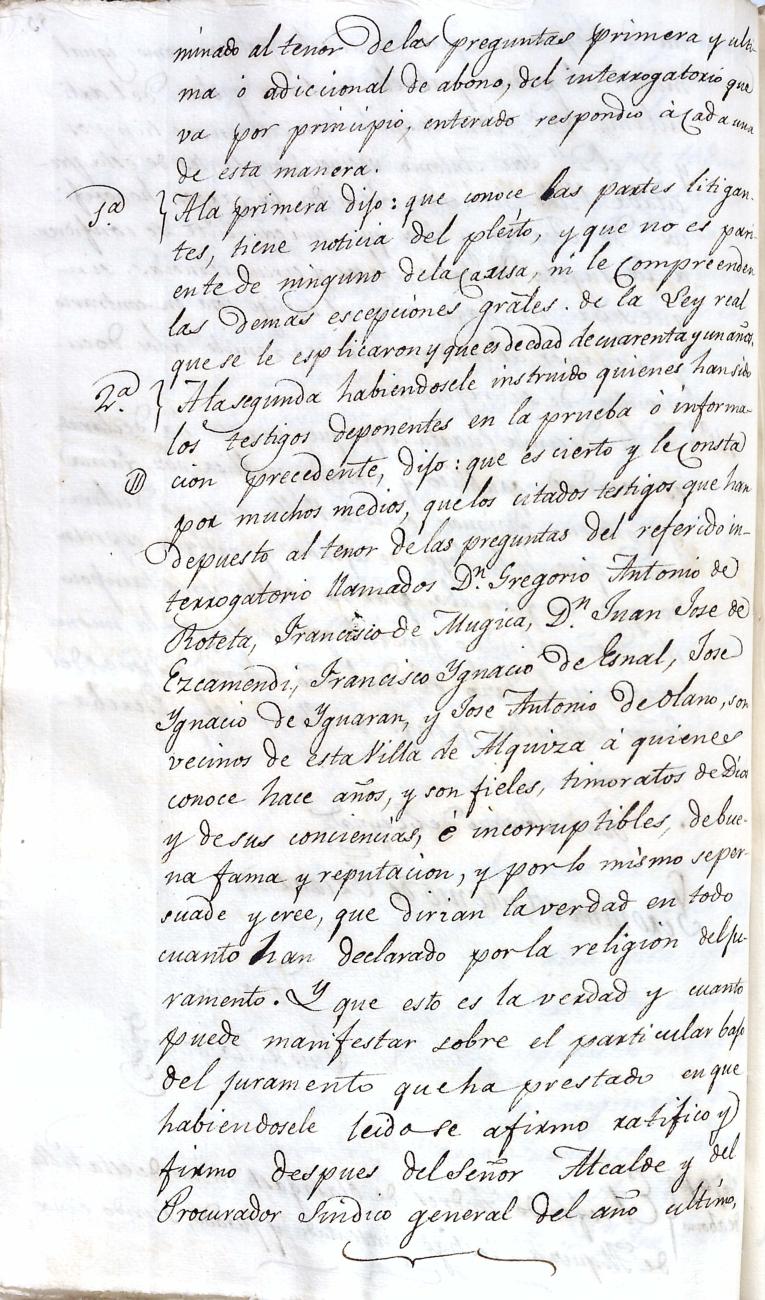 minado al tenor de las preguntas primera y ulti-
ma ó adiccional de abono, del interrogatorio que
va por principio, enterado respondio à cada una
de esta manera.
1ª } A la primera dijo: que conoce las partes litigan-
tes, tiene noticia del pleito, y que no es pari-
ente de ninguno dela causa, ni le compreenden
las demas escepciones grāles. de la Ley real
que se le esplicaron y que es de edad de cuarenta y un años.
2ª } A la segunda habiendosele instruido quienes han sido
los testigos deponentes en la prueba ò informa-
cion precedente, dijo: que es cierto y le consta
por muchos medios, que los citados testigos que han
depuesto al tenor de las preguntas del referido in-
terrogatorio llamados Dn. Gregorio Antonio de
Roteta, Francisco de Mugica, Dn. Juan Jose de
Ezcamendi, Francisco Ygnacio de Esnal, Jose
Ygnacio de Yguaran, y Jose Antonio de Olano, son
vecinos de esta Villa de Alquiza á quienes
conoce hace años, y son fieles, timoratos de Dios
y de sus conciencias, é incorruptibles, de bue-
na fama y reputacion, y por lo mismo se per-
suade y cree, que dirian la verdad en todo
cuanto han declarado por la religion del ju-
ramento. Y que esto es la verdad y cuanto
puede manifestar sobre el particular bajo
del juramento que ha prestado en que
habiendosele leido se afirmo ratifico y
firmo despues del Señor Alcalde y del
Procurador Sindico general del año ultimo,